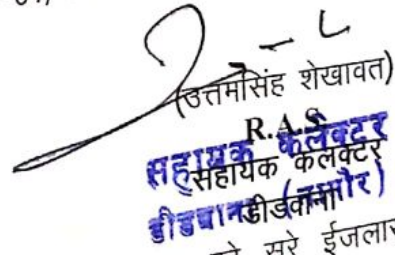 (उत्तमसिंह शेखावत)
R.A.S.
सहायक कलेक्टर
सहायक कलेक्टर
डीडवाना (नागौर)
डीडवाना
सरे ईजलास